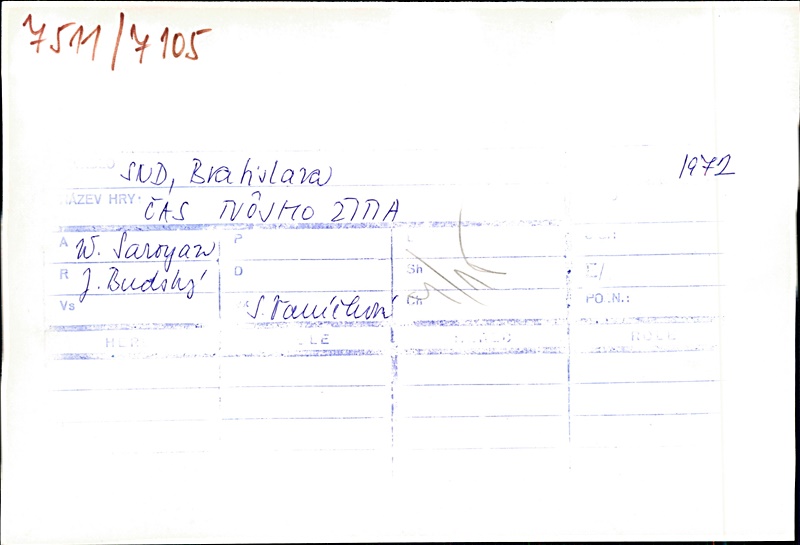 7511/7105
SND, Bratislava 1972
NÁZEV HRY:
ČAS TVÔJHO ŽITIA
A W. Saroyan P
R J. Budský D Sh
Vs S. Vaníčková Ch PO.N.:
ROLE